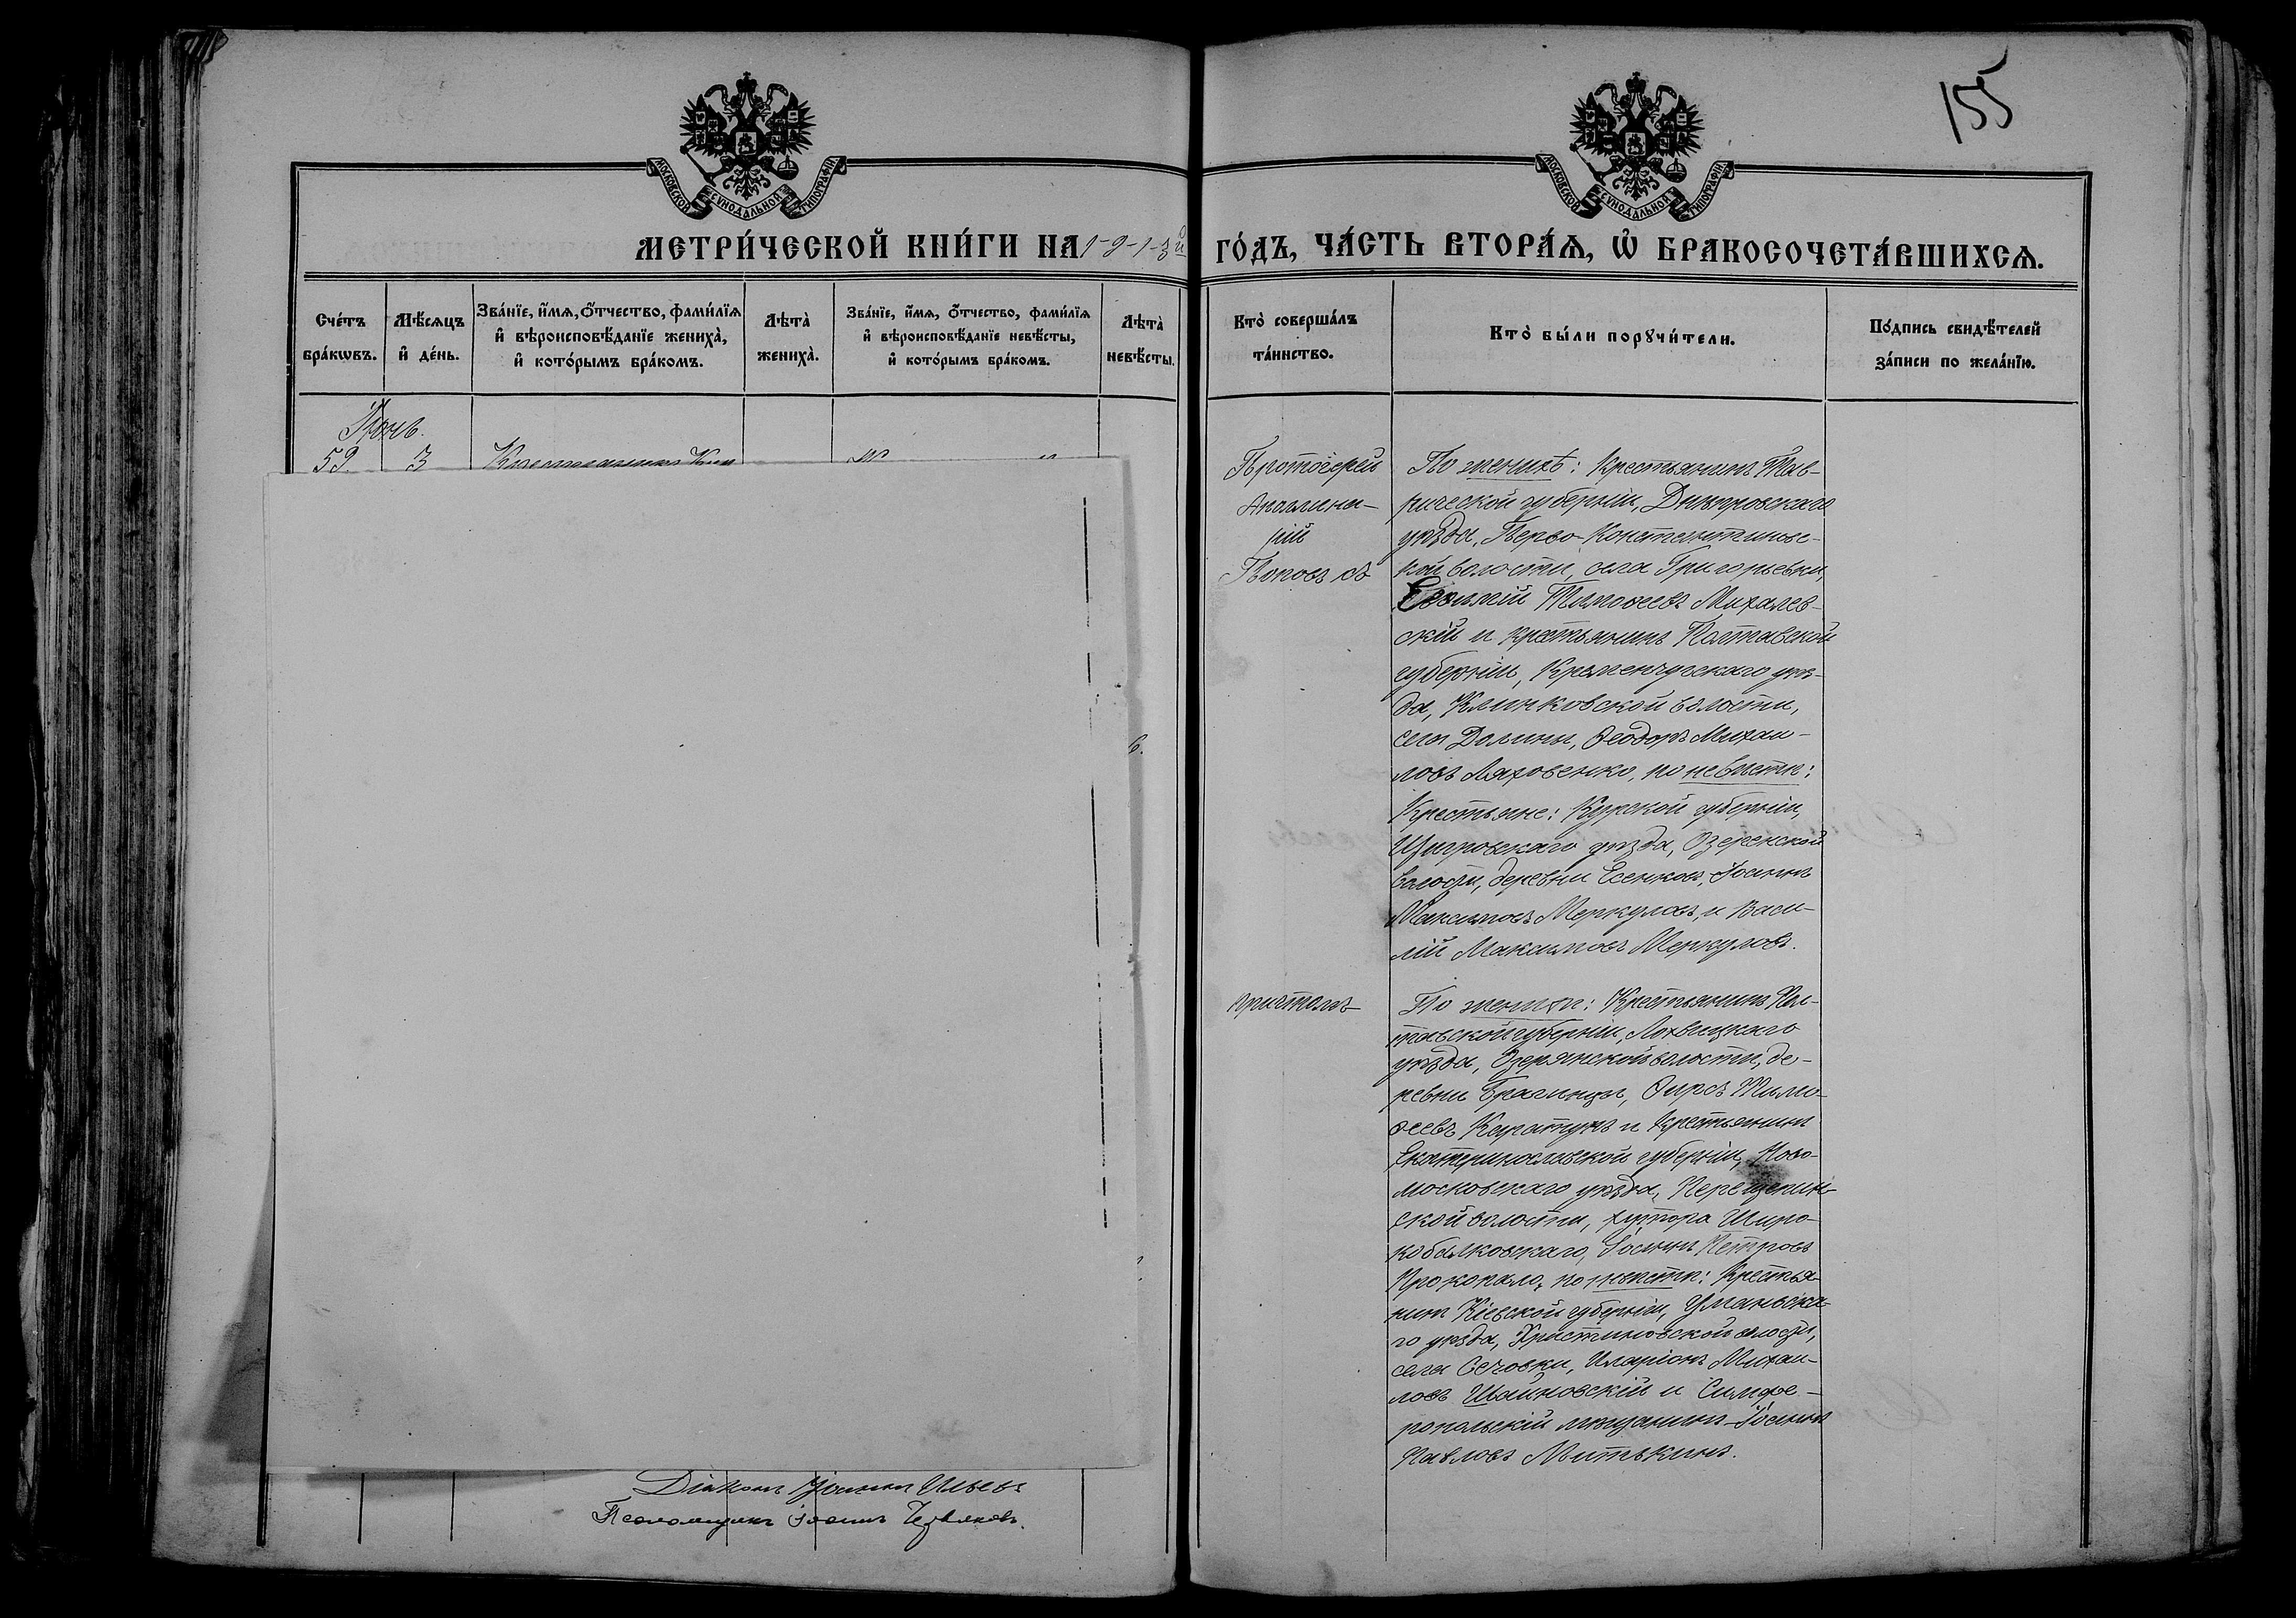 155
МОСКОВСКОЙ СѴНОДАЛЬНОЙ ТИПОГРАФІИ
МОСКОВСКОЙ СѴНОДАЛЬНОЙ ТИПОГРАФІИ
МЕТРИ́ЧЕСКОЙ КНИ́ГИ НА 1-9-1-3й ГО́ДЪ, ЧА́СТЬ ВТОРА́Ѧ, Ѽ БРАКОСОЧЕТА́ВШИХСѦ.
Сче́тъ бра́кѡвъ.
Мѣ́сѧцъ и҆ де́нь.
Зва́нїе, и҆́мѧ, ѻ҆́тчество, фами́лїѧ
и҆ вѣроисповѣ́данїе жениха̀,
и҆ кото́рымъ бра́комъ.
Лѣта̀ жениха̀.
Зва́нїе, и҆́мѧ, ѻ҆́тчество, фами́лїѧ
и҆ вѣроисповѣ́данїе невѣ́сты,
и҆ кото́рымъ бра́комъ.
Лѣта̀ невѣ́сты.
Кто̀ соверша́лъ
та́инство.
Кто̀ бы́ли порꙋчи́тели.
По́дпись свидѣ́телей
за́писи по жела́нїю.
59. 3
Протоіерей
Аполлина-
рій
Поповъ съ
По женихѣ: крестьянинъ Тав-
рической губерніи, Днѣпровскаго
уѣзда, Перво-Константиновс-
кой волости, села Григорьевки,
Евѳимій Тимоѳеевъ Михалев-
скій и крестьянинъ Полтавской
губерніи, Кременчугскаго уѣз-
да, волости,
села Долины, Ѳеодоръ Михаи-
ловъ Ляховенко, по невѣстѣ:
Крестьяне: Курской губерніи,
Щигровскаго уѣзда, Озеренской
волости, деревни Есенковъ, Іоаннъ
Максимовъ Меркуловъ, и Васи-
лій Максимовъ Меркуловъ.
причтомъ
По женихѣ: Крестьянинъ Пол-
тавской губерніи, Лохвицкаго
уѣзда, Озерянской волости, де-
ревни Брагинцы, Ѳирсъ Тимо-
ѳеевъ и крестьянинъ
Екатеринославской губерніи, Ново-
московскаго уѣзда, Перещепин-
ской волости, хутора Широ-
кобалковскаго, Іоаннъ Петровъ
Прокопало, по невѣстѣ: Крестья-
нинъ Кіевской губерніи, Уманьска-
го уѣзда, Христиновской волости,
села Сычовки, Иларіонъ Михаи-
ловъ и Симфе-
ропольскій мѣщанинъ Іоаннъ
Павловъ Митькинъ.
Діаконъ Іоаннъ Ильевъ
Псаломщикъ Іоаннъ Червяковъ.